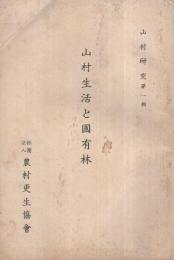 山村研究第一輯
山村生活と國有林
社團法人 農村更生協會